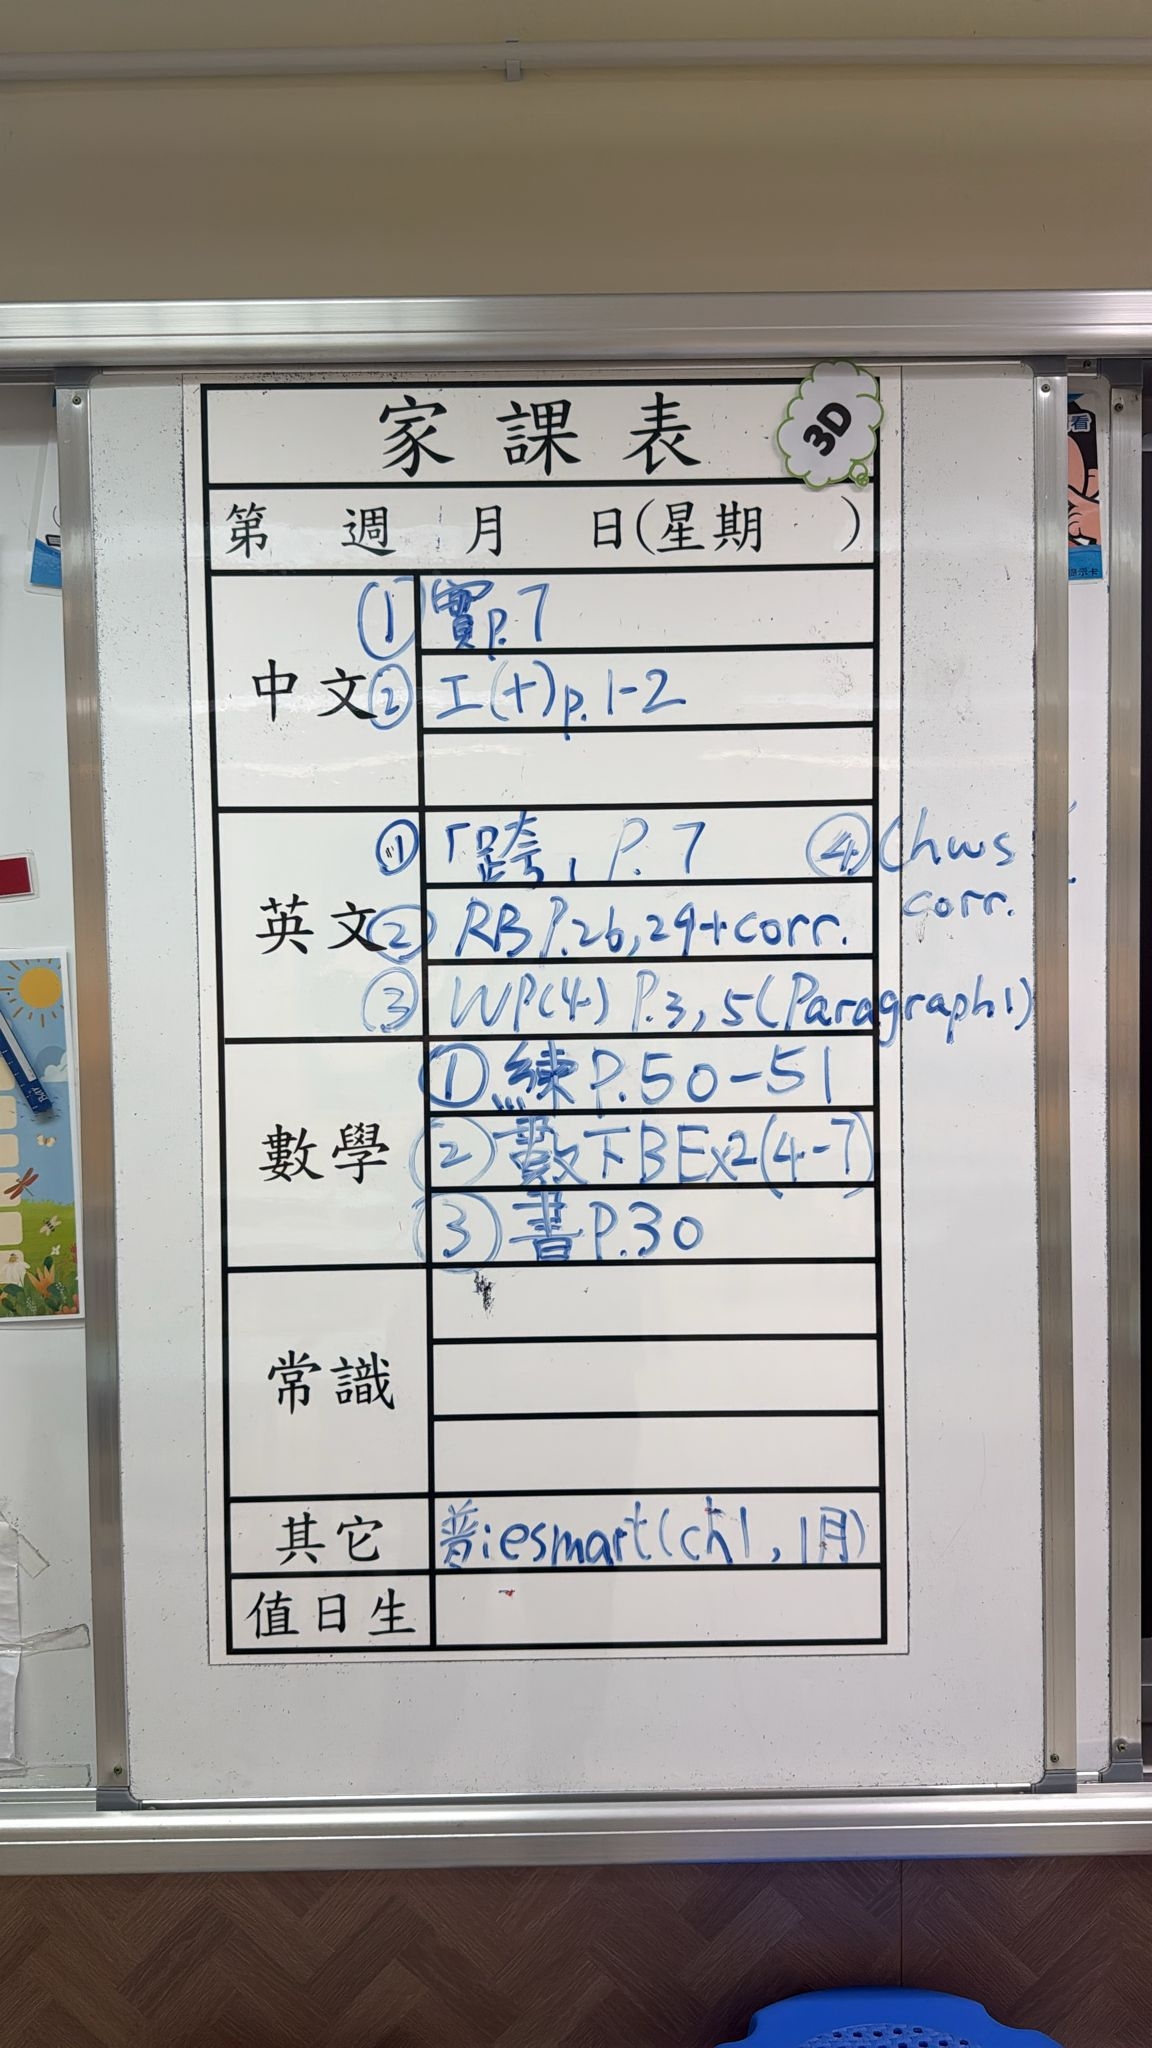 家課表
3D
第 週 月 日(星期 )
中文
① 實p.7
② 工(十)p.1-2
英文
① 「跨」P.7
② RB P.26,29+corr.
③ WP(4) P.3,5(Paragraph1)
④ Chws
corr.
數學
① 練P.50-51
② 數下B Ex2(4-7)
③ 書P.30
常識
其它
普:esmart(ch1,1月)
值日生
看
提示卡